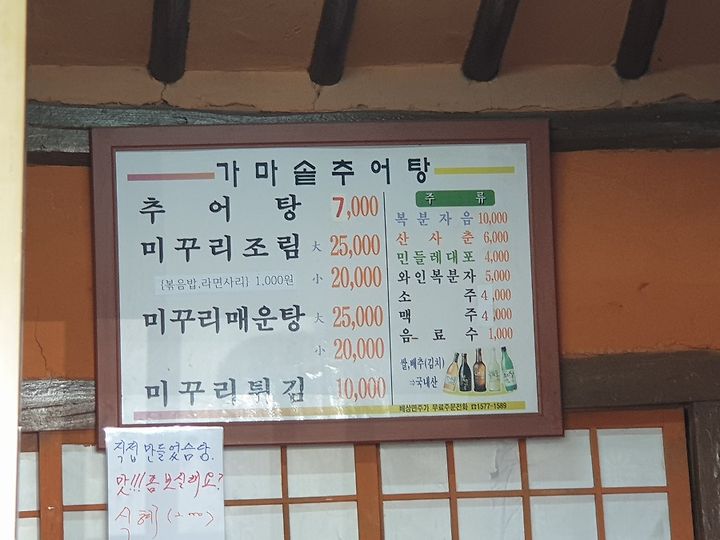 가마솥추어탕
추 어 탕 7,000
미꾸리조림 大 25,000
{볶음밥.라면사리} 1,000원 小 20,000
미꾸리매운탕 大 25,000
小 20,000
미꾸리튀김 10,000
주 류
복분자음 10,000
산사춘 6,000
민들레대포 4,000
와인복분자 5,000
소 주 4,000
맥 주 4,000
음료수 1,000
쌀,배추(김치)
⇒국내산
배상면주가 무료주문전화 ☎1577-1589
직접 만들었슴당.
맛!!! 좀 보실래요?
식혜 (2.000)